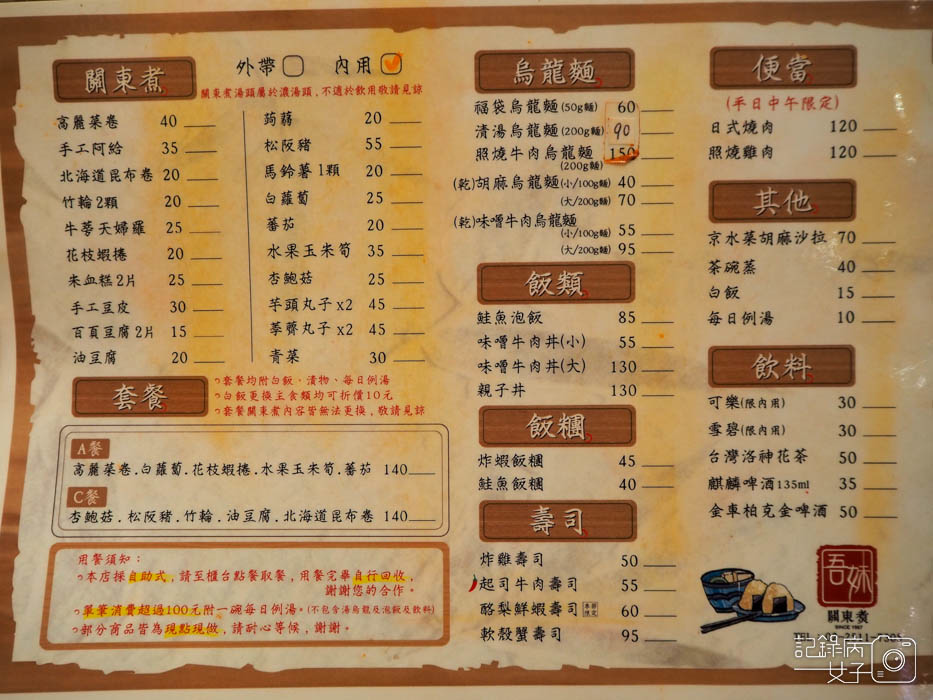 關東煮
外帶 內用
關東煮湯頭屬於濃湯頭，不適於飲用敬請見諒
高麗菜卷 40
手工阿給 35
北海道昆布卷 20
竹輪2顆 20
牛蒡天婦羅 25
花枝蝦捲 20
米血糕2片 25
手工豆皮 30
百頁豆腐2片 15
油豆腐 20
蒟蒻 20
松阪豬 55
馬鈴薯1顆 20
白蘿蔔 25
蕃茄 20
水果玉米筍 35
杏鮑菇 25
芋頭丸子x2 45
荸薺丸子x2 45
青菜 30
套餐
套餐均附白飯、漬物、每日例湯
白飯更換主食類均可折價10元
套餐關東煮內容皆無法更換，敬請見諒
A餐
高麗菜卷.白蘿蔔.花枝蝦捲.水果玉米筍.蕃茄 140
C餐
杏鮑菇.松阪豬.竹輪.油豆腐.北海道昆布卷 140
用餐須知：
本店採自助式，請至櫃台點餐取餐，用餐完畢自行回收，
謝謝您的合作。
單筆消費超過100元附一碗每日例湯。(不包含湯烏龍及泡飯及飲料)
部分商品皆為現點現做，請耐心等候，謝謝。
烏龍麵
福袋烏龍麵(50g麵) 60
清湯烏龍麵(200g麵) 90
照燒牛肉烏龍麵 150
(200g麵)
(乾)胡麻烏龍麵(小/100g麵) 40
(大/200g麵) 70
(乾)味噌牛肉烏龍麵
(小/100g麵) 55
(大/200g麵) 95
飯類
鮭魚泡飯 85
味噌牛肉丼(小) 55
味噌牛肉丼(大) 130
親子丼 130
飯糰
炸蝦飯糰 45
鮭魚飯糰 40
壽司
炸雞壽司 50
起司牛肉壽司 55
酪梨鮮蝦壽司 季節限定 60
軟殼蟹壽司 95
便當
(平日中午限定)
日式燒肉 120
照燒雞肉 120
其他
京水菜胡麻沙拉 70
茶碗蒸 40
白飯 15
每日例湯 10
飲料
可樂(限內用) 30
雪碧(限內用) 30
台灣洛神花茶 50
麒麟啤酒135ml 35
金車柏克金啤酒 50
吾妹
關東煮
SINCE 1987
記錄病
女子